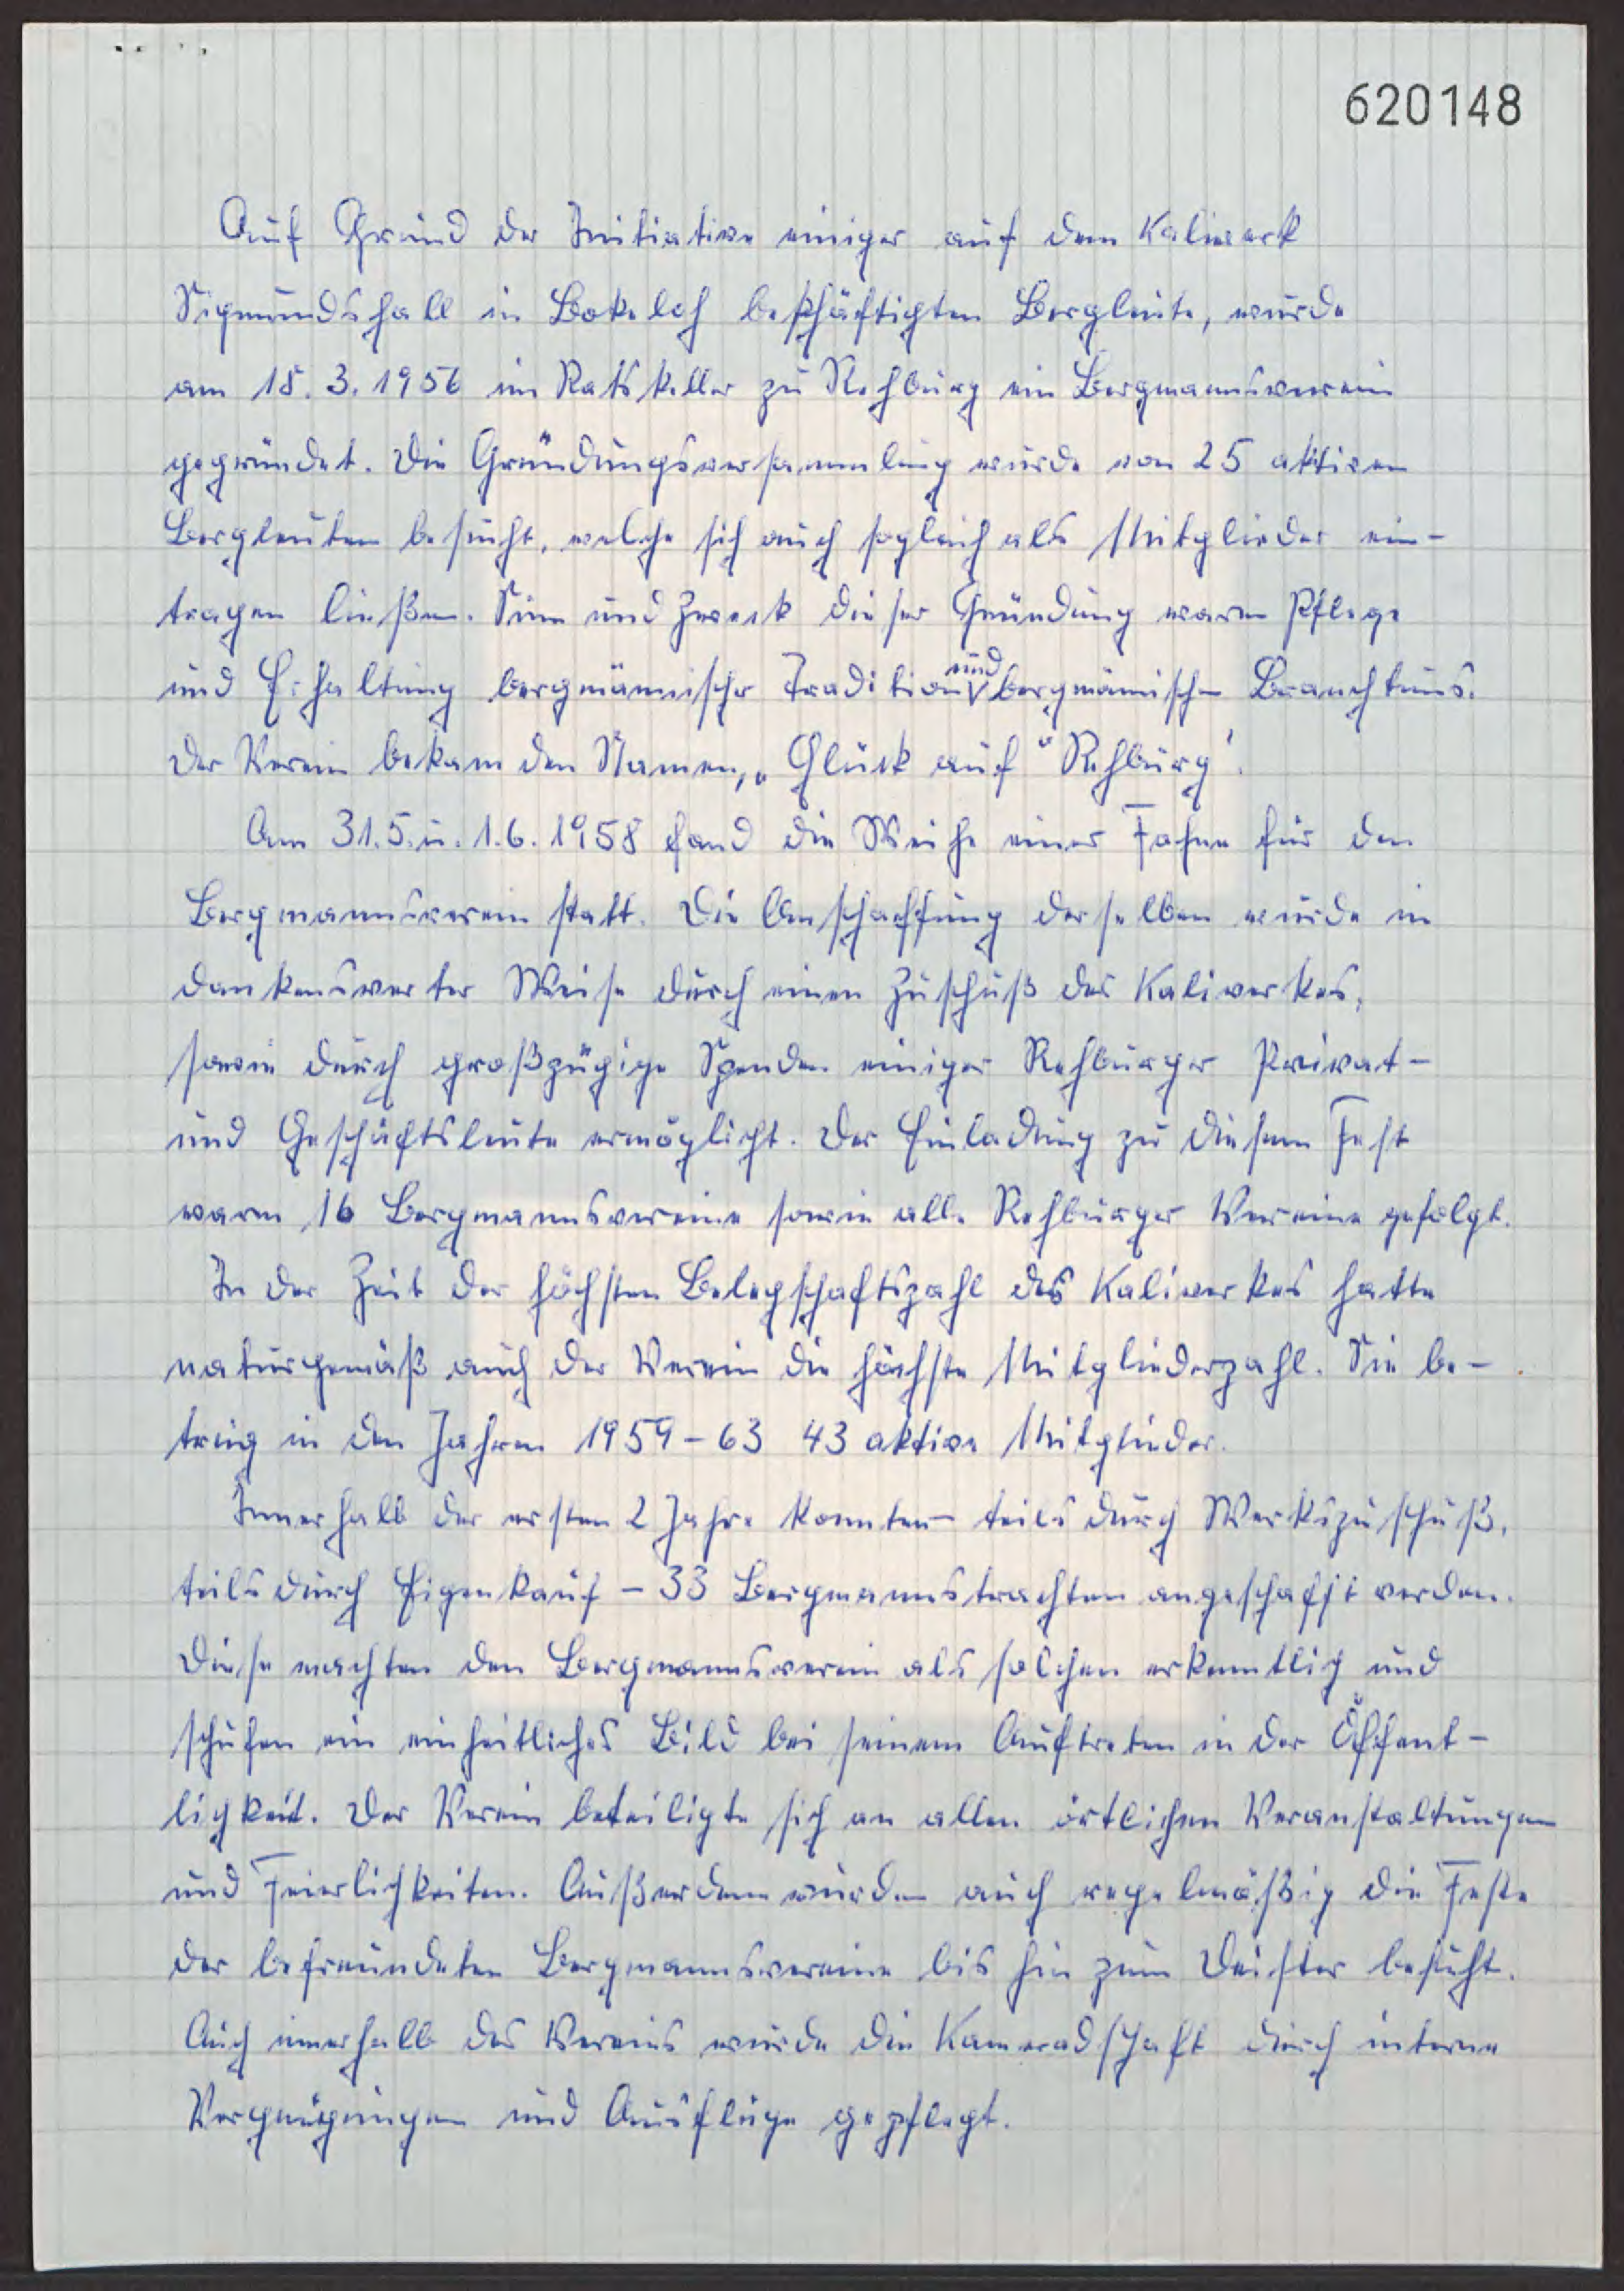 620148
Auf Grund der Initiative einiger auf dem Kaliwerk
Sigmundshall in Bokeloh beschäftigten Bergleute, wurde
am 18. 3. 1956 im Ratskeller zu Rehburg ein Bergmannsverein
gegründet. Die Gründungsversammlung wurde von 25 aktiven
Bergleuten besucht, welche sich auch sogleich als Mitglieder ein-
tragen ließen. Sinn und Zweck dieser Gründung waren Pflege
und Erhaltung bergmännischer Tradition und bergmännischen Brauchtums.
Der Verein bekam den Namen, „Glück auf" Rehburg'.
Am 31.5. u. 1.6. 1958 fand die Weihe einer Fahne für den
Bergmannsverein statt. Die Anschaffung derselben wurde in
dankenswerter Weise durch einen Zuschuß des Kaliwerkes,
sowie durch großzügige Spenden einiger Rehburger Privat-
und Geschäftsleute ermöglicht. Der Einladung zu diesem Fest
waren 16 Bergmannsvereine sowie alle Rehburger Vereine gefolgt.
In der Zeit der höchsten Belegschaftszahl des Kaliwerkes hatte
naturgemäß auch der Verein die höchste Mitgliederzahl. Sie be-
trug in den Jahren 1959-63 43 aktive Mitglieder.
Innerhalb der ersten 2 Jahre konnten - teils durch Werkszuschuß,
teils durch Eigenkauf - 33 Bergmannstrachten angeschafft werden.
Diese machten den Bergmannsverein als solchen erkenntlich und
schufen ein einheitliches Bild bei seinem Auftreten in der Öffent-
lichkeit. Der Verein beteiligte sich an allen örtlichen Veranstaltungen
und Feierlichkeiten. Außerdem wurden auch regelmäßig die Feste
der befreundeten Bergmannsvereine bis hin zum Deister besucht.
Auch innerhalb des Vereins wurde die Kameradschaft durch interne
Vergnügungen und Ausflüge gepflegt.